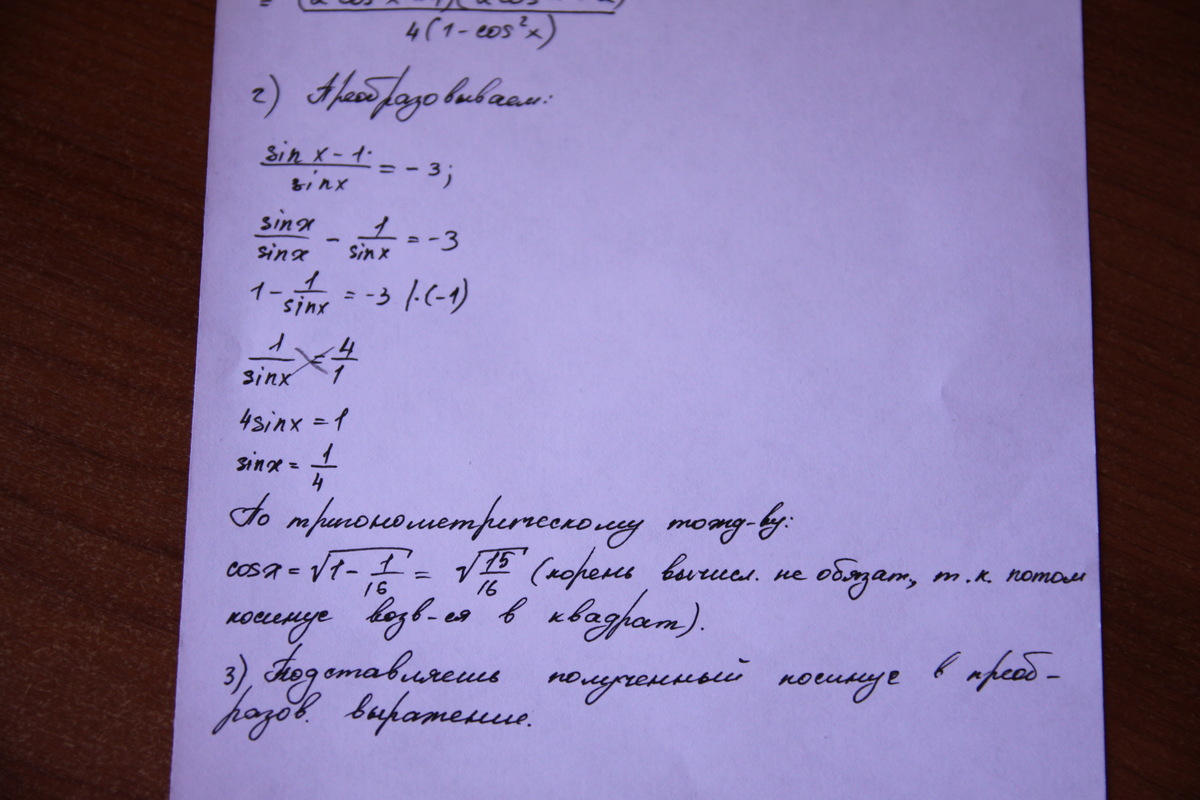 4(1-cos²x)
2) Преобразовываем:
(sin x - 1)/sinx = -3;
sinx/sinx - 1/sinx = -3
1 - 1/sinx = -3 |·(-1)
1/sinx = 4/1
4sinx = 1
sinx = 1/4
По тригонометрическому тожд-ву:
cosx = √(1 - 1/16) = √(15/16) (корень вычисл. не обязат., т.к. потом
косинус возв-ся в квадрат).
3) Подставляешь полученный косинус в преоб-
разов. выражение.